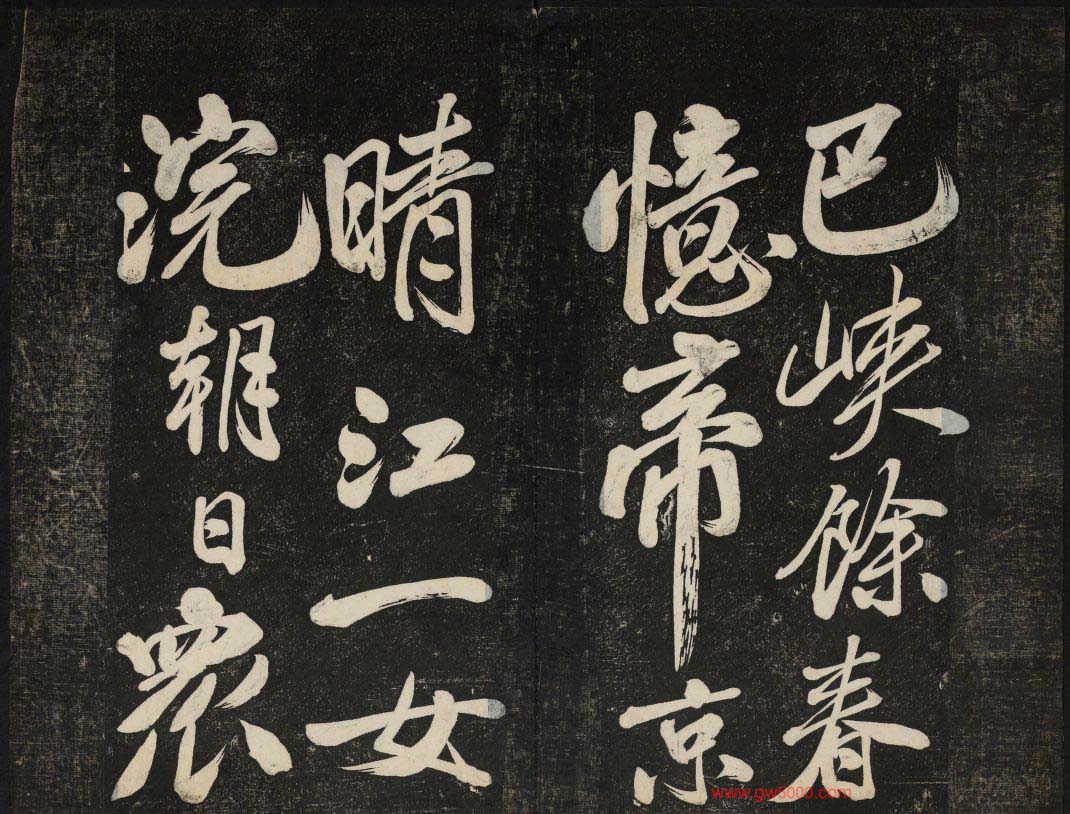 巴峽餘春
憶帝京
晴江一女
浣朝日衆
www.gw5000.com